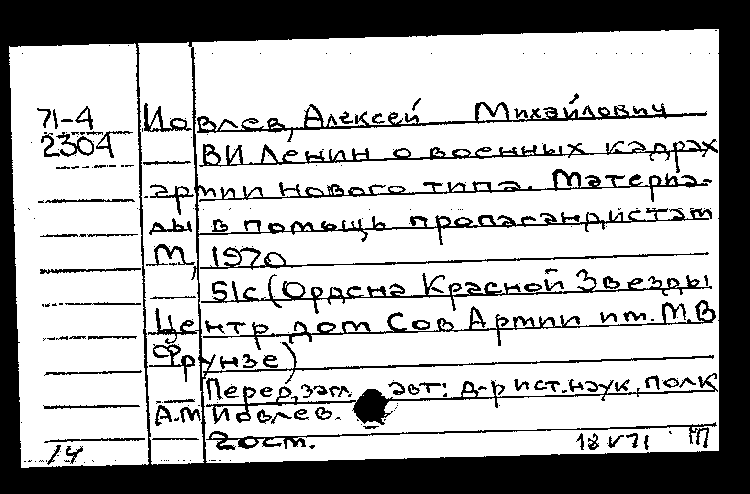 71-4 Иовлев, Алексей Михайлович
2304 ВИ Ленин о военных кадрах
армии нового типа. Материа-
лы в помощь пропагандистам
М, 1970
51с (Ордена Красной Звезды
Центр дом Сов Армии им. М.В
Фрунзе)
Перед, загл. авт: д-р ист. наук, полк
А.М Иовлев.
2 ост.
14 18 V 71